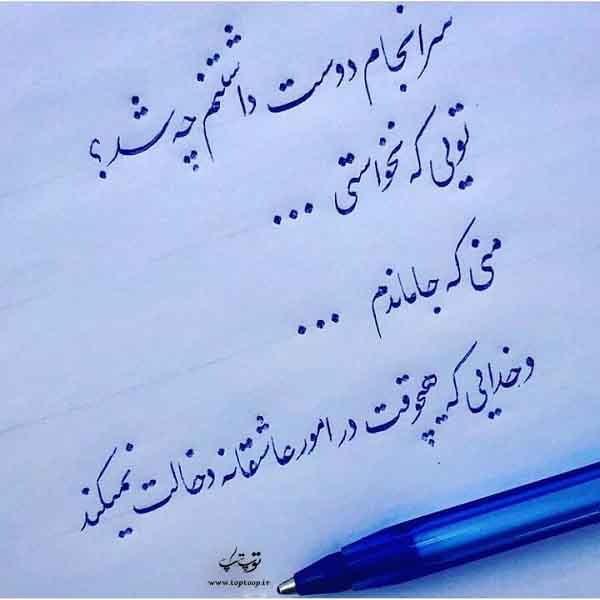 سرانجام دوست داشتنم چه شد؟
تویی که نخواستی ...
منی که جاماندم ...
و خدایی که هیچوقت در امور عاشقانه دخالت نمیکند
توپ تاپ
www.toptoop.ir